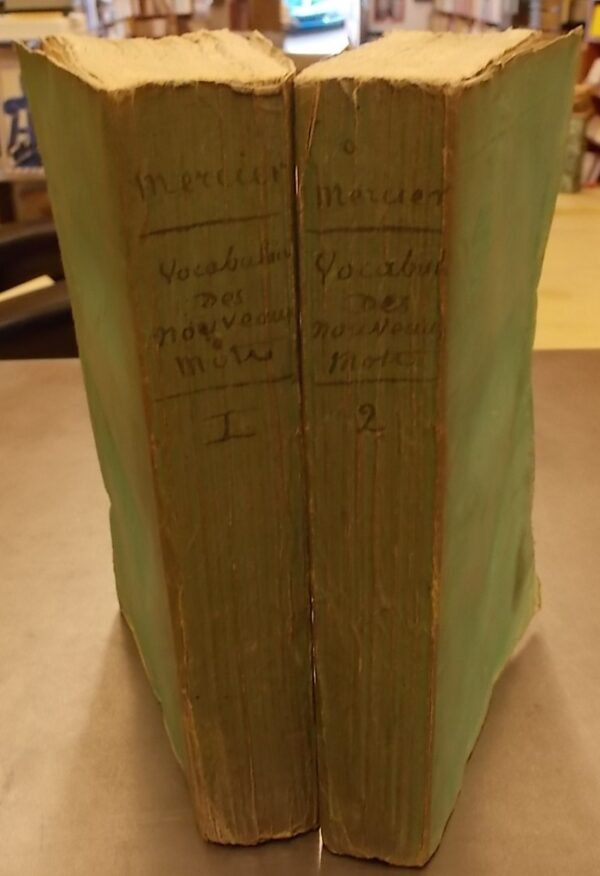 Mercier
Vocabulai
Des
nouveaux
Mots
I
Mercier
Vocabul
Des
nouveaux
Mots
2